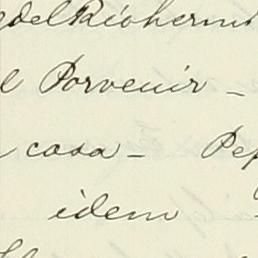 del Rioherm
l Porvenir -
casa - Pep
idem